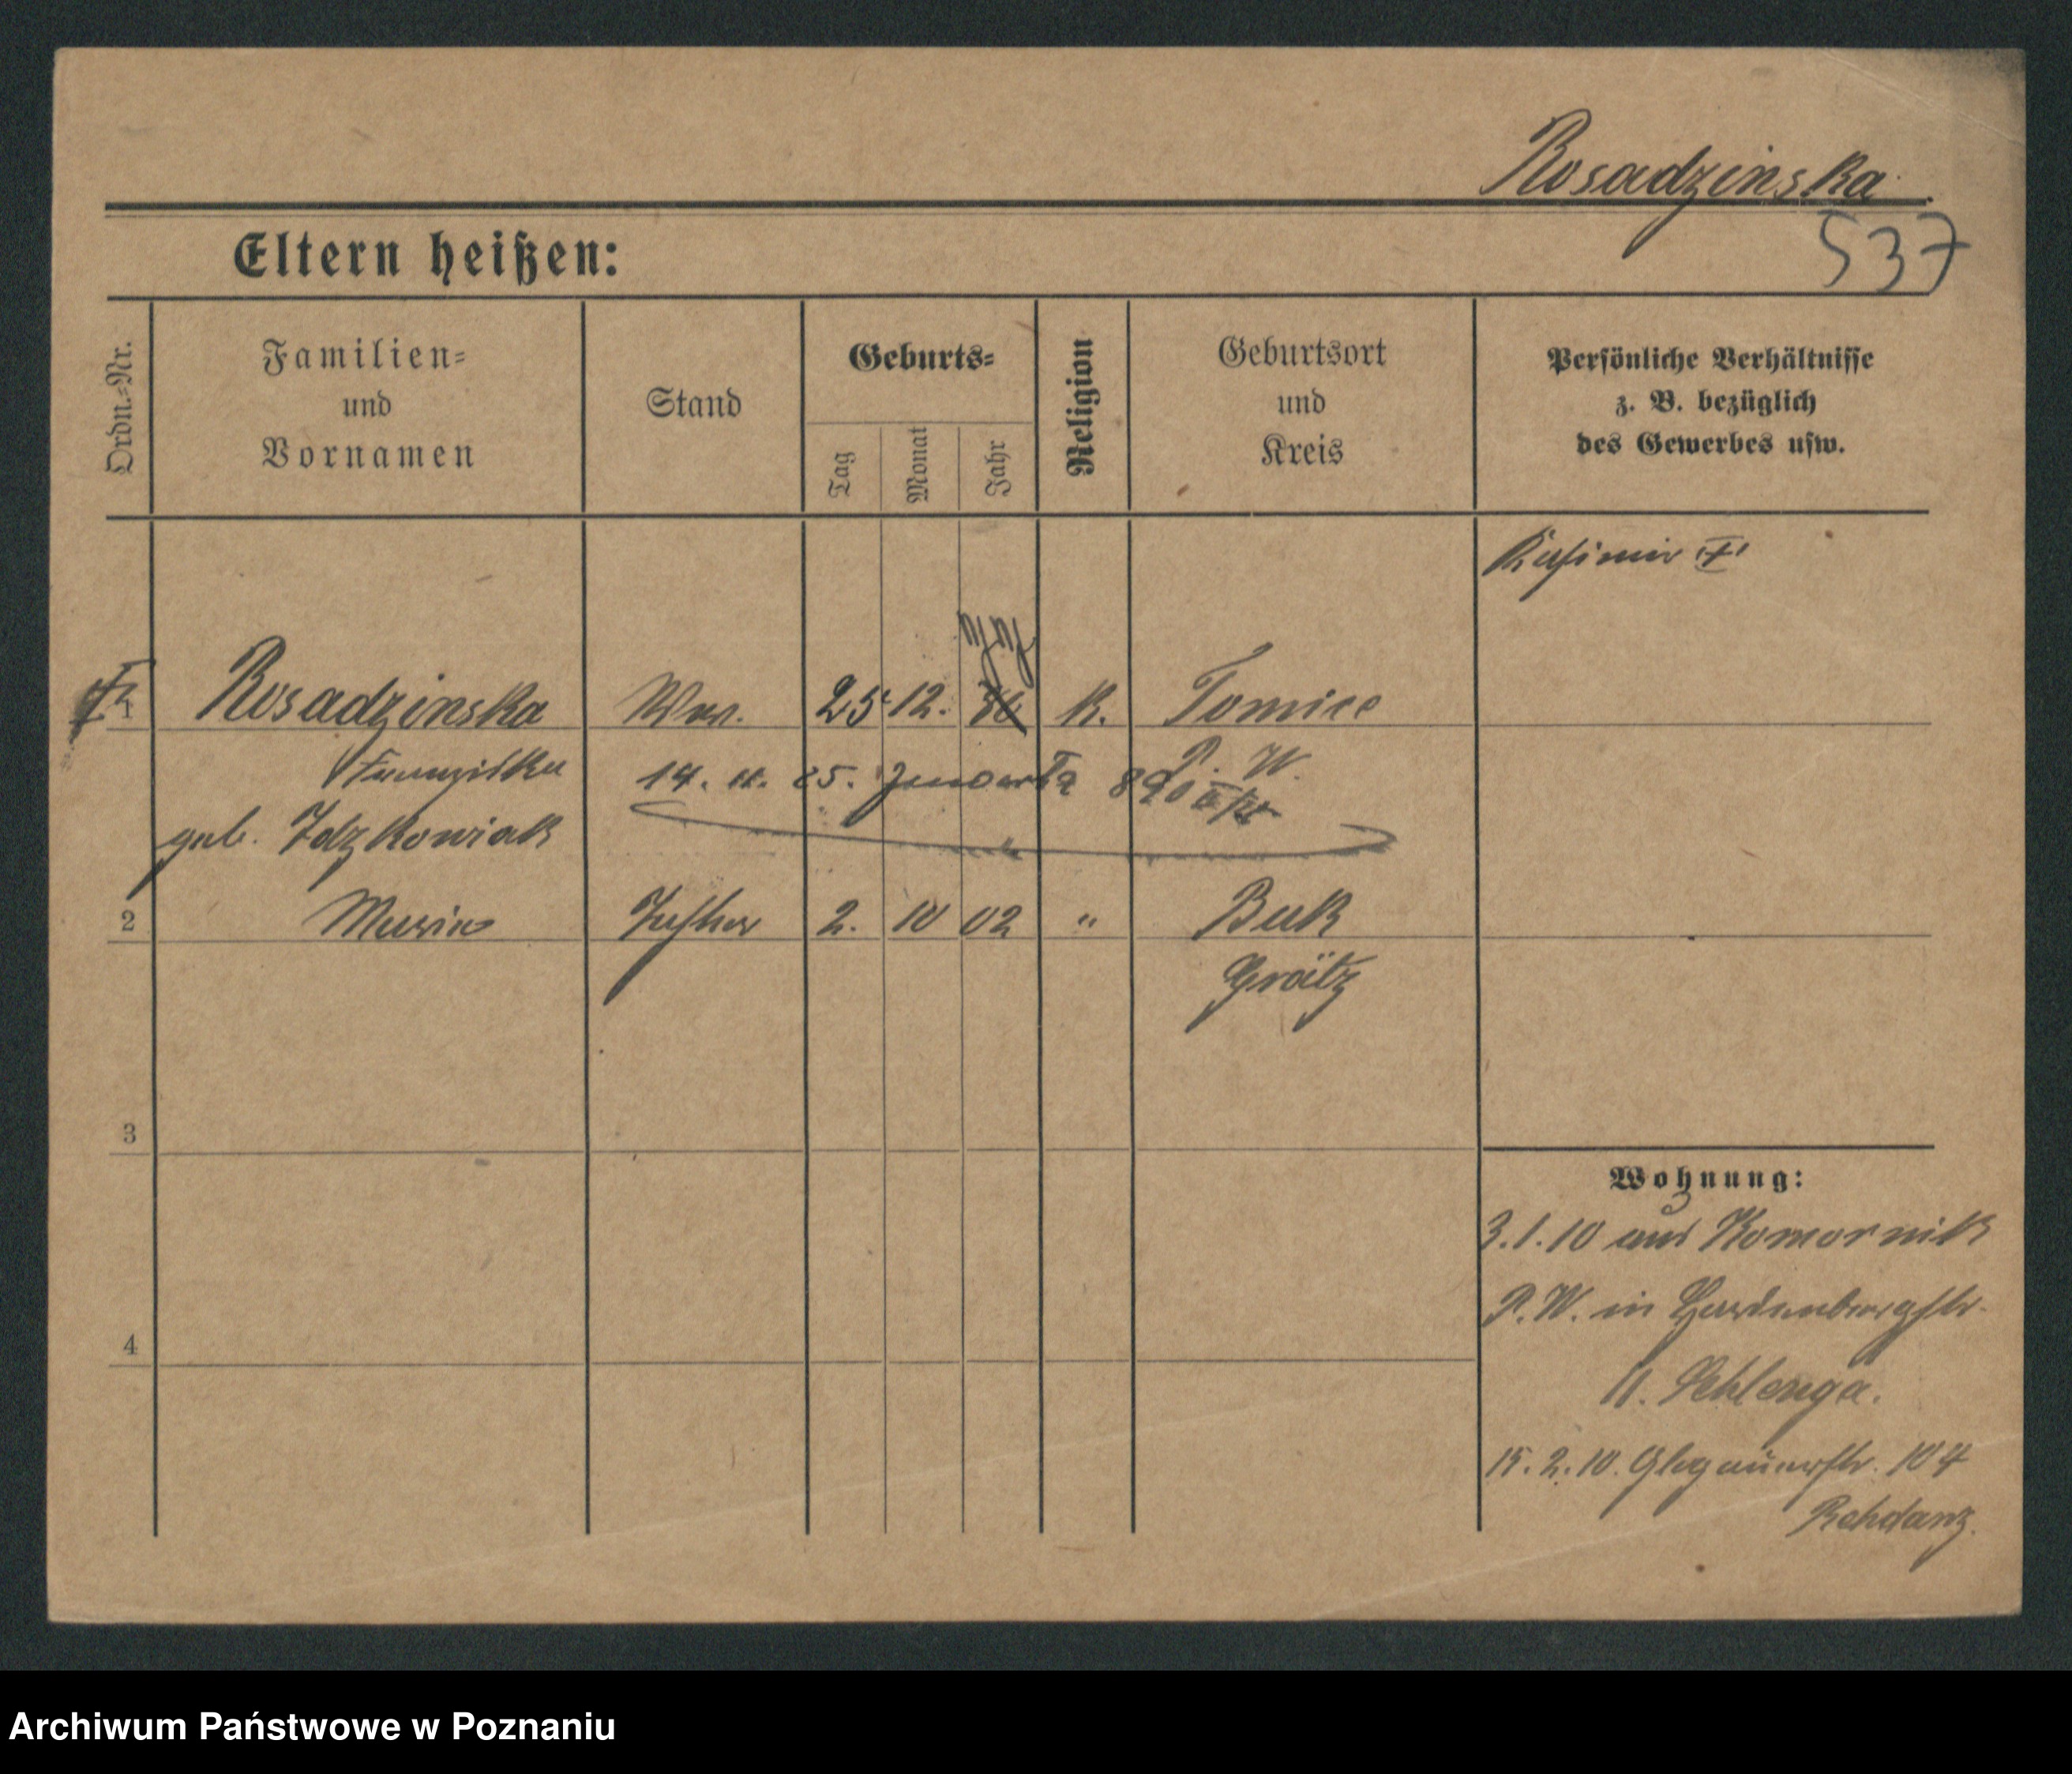 Rosadzinska
537
Eltern heißen:
Ordn.-Nr.
Familien-
und
Vornamen
Stand
Geburts-
Tag
Monat
Jahr
Religion
Geburtsort
und
Kreis
Persönliche Verhältnisse
z. B. bezüglich
des Gewerbes usw.
Kasimir
1 Rosadzinska Ww. 25 12. K. Tomice
Franziska P. W.
geb. Idzkowiak
2 Maria Tochter 2. 10 02 " Buk
Grätz
3
4
Wohnung:
3.1.10 aus Komornik
P.W. in Hardenbergstr.
11. Schlenga.
15.2.10. Glogauerstr. 104
Rehdanz.
Archiwum Państwowe w Poznaniu